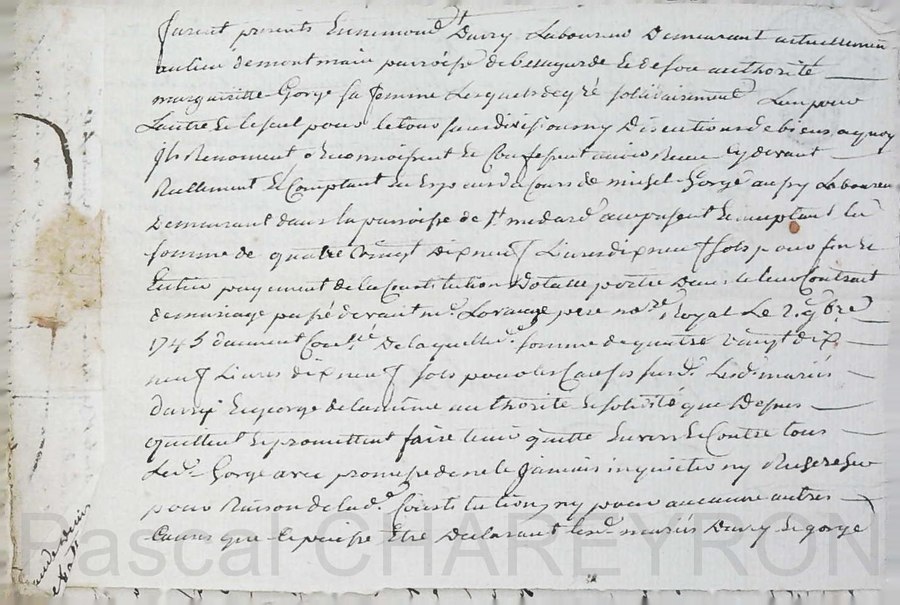 furent presents Ennemond Davry Laboureur Demeurant actuellement
au lieu de montmain parroisse de bellegarde et de son authorité
margueritte Gorge sa femme Lesquels de gré solidairement L'un pour
L'autre et le seul pour le tout sans division ny Discution de biens a quoy
ils Renoncent o Reconnoissent et Confessent avoir Receu cy devant
Reellement et Comptant en Espèces du Cours de michel Gorge aussy Laboureur
Demeurant dans la parroisse de St medard au present acceptant la
somme de quatre vingt Dix neuf Livres dix neuf sols pour fin et
Entier payement de la Constitution Dotalle portée Dans le leur Contrant
de mariage passé devant me Lorange pere nore Royal Le 9bre
1745 duement Conlé De laquelle somme de quatre vaingt dix
neuf Livres dix neuf sols pour les Causes susd. Lesd. mariés
davry Et gorge de la même authorité et solidité que Dessus
quittent et promettent faire tenir quitte Envers et Contre tous
Led. Gorge avec promesse de ne le Jamais inquietter ny Rechercher
pour Raison de lad. Constitution, ny pour aucune autres
Causes que Ce puisse Etre Declarant lesd. mariés Davry et gorge
Pascal CHAREYRON